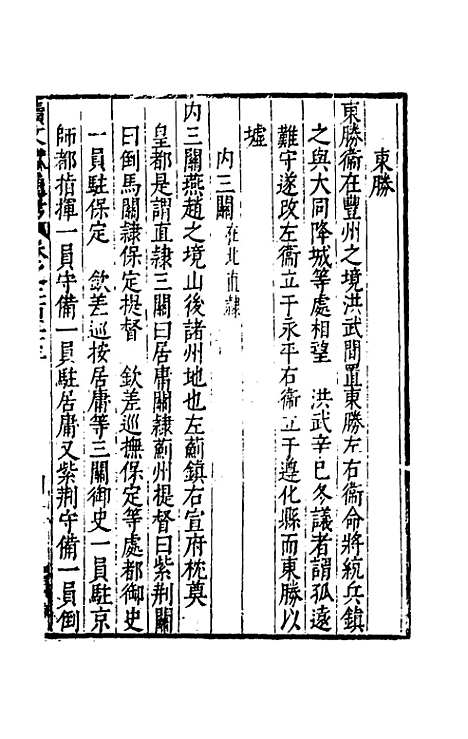 東勝
東勝衞在豐州之境洪武間置東勝左右衞命將統兵鎮
之與大同降城等處相望 洪武辛巳冬議者謂孤遠
難守遂改左衞立于永平右衞立于遵化縣而東勝以
墟
內三關在北直隸
內三關燕趙之境山後諸州地也左薊鎮右宣府枕奠
皇都是謂直隸三關曰居庸關隸薊州提督曰紫荆關
曰倒馬關隸保定提督 欽差巡撫保定等處都御史
一員駐保定 欽差巡按居庸等三關御史一員駐京
師都指揮一員守備一員駐居庸又紫荆守備一員倒
續文獻通考